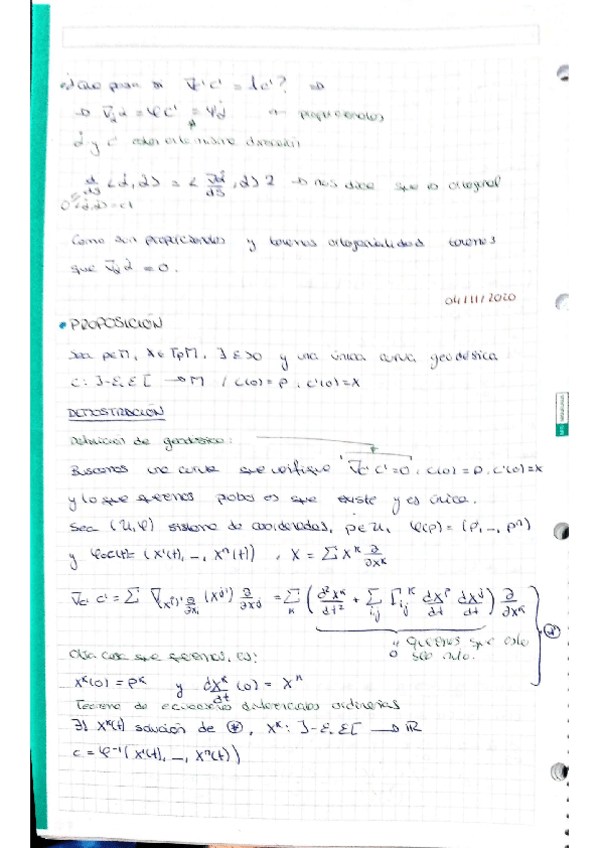 ¿Qué pasa si ∇c' c' = λc'? ⇒
→ ∇α̇ α̇ = φc' = φα̇ ← proporcionales
α̇ y c' misma dirección
d/ds <α̇, α̇> = < ∇α̇/ds , α̇> 2 → nos dice que es ortogonal
0 <α̇,α̇> = ct
Como son proporcionales y tenemos ortogonalidad tenemos
que ∇α̇ α̇ = 0.
04/11/2020
• PROPOSICIÓN
Sea p∈M, X∈TpM, ∃ ε>0 y una única curva geodésica
c: ]-ε,ε[ → M / c(0)=p, c'(0)=X
DEMOSTRACIÓN
Definición de geodésica:
Buscamos una curva que verifique ∇c' c'=0, c(0)=p, c'(0)=X
y lo que queremos probar es que existe y es única.
Sea (U,φ) sistema de coordenadas, p∈U, φ(p)=(p¹,–,pⁿ)
y φ∘c(t)=(x¹(t),–,xⁿ(t)), X=∑Xᵏ ∂/∂xᵏ
∇c' c' = ∑ ∇(xⁱ)' ∂/∂xi (xʲ)' ∂/∂xʲ = ∑k ( d²xᵏ/dt² + ∑ij Γijᵏ dxⁱ/dt dxʲ/dt ) ∂/∂xᵏ
0 queremos que esto sea nulo.
Otra cosa que queremos, es:
xᵏ(0)=pᵏ y dxᵏ/dt (0) = Xᵏ
Teorema de ecuaciones diferenciales ordinarias
∃! xᵏ(t) solución de (*), xᵏ: ]-ε,ε[ → ℝ
c = φ⁻¹(x¹(t),–,xⁿ(t))